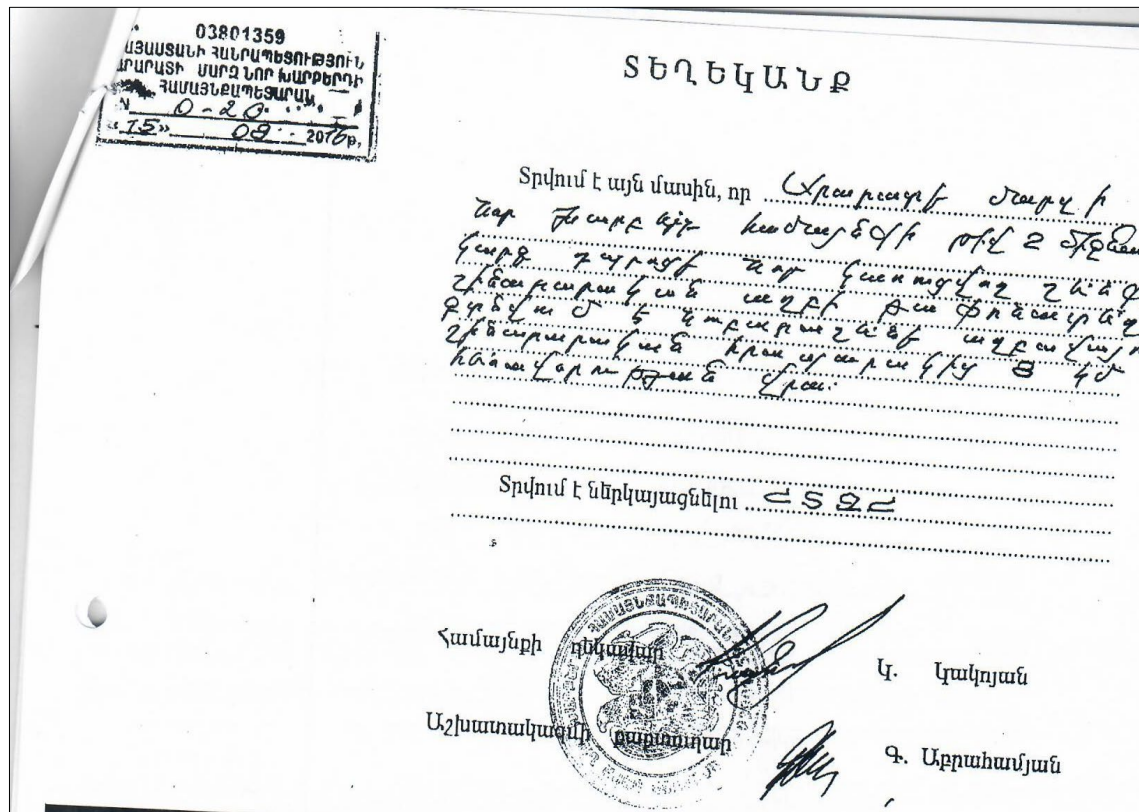 03801359
ՀԱՅԱՍՏԱՆԻ ՀԱՆՐԱՊԵՏՈՒԹՅՈՒՆ
ԱՐԱՐԱՏԻ ՄԱՐԶ ՆՈՐ ԽԱՐԲԵՐԴԻ
ՀԱՄԱՅՆՔԱՊԵՏԱՐԱՆ
N 0-20
«15» 09 2016թ.
ՏԵՂԵԿԱՆՔ
Տրվում է այն մասին, որ Արարատի մարզի
Նոր Խարբերդ համայնքի թիվ 2 միջնա
կարգ դպրոցի նոր կառուցվող շենքի
շինարարական աղբի թափոնատեղ
գտնվում է աղբավայր
շինարարական հրապարակից 8 կմ
հեռավորության վրա:
Տրվում է ներկայացնելու ՀՏԶՀ
Համայնքի ղեկավար
Կ. Կակոյան
Աշխատակազմի քարտուղար
Գ. Աբրահամյան